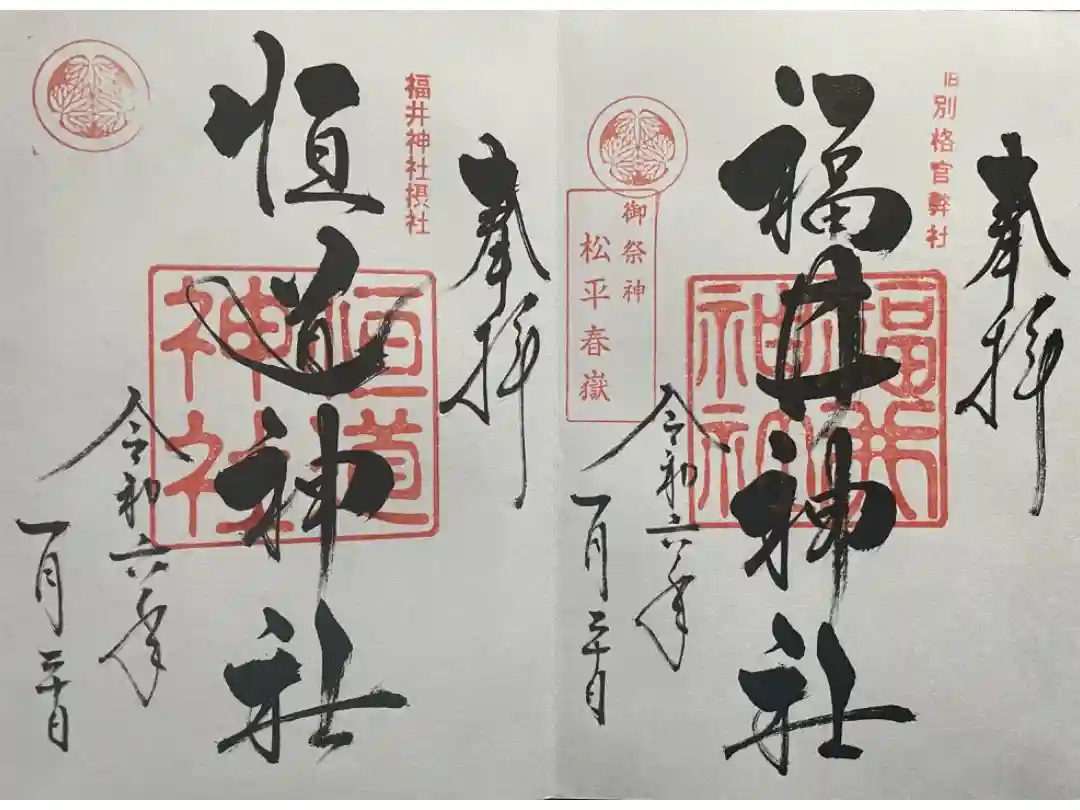 奉拝
旧別格官幣社
福井神社
福井神社
御祭神
松平春嶽
令和六年
一月三十日
奉拝
福井神社摂社
恒道神社
恒道神社
令和六年
一月三十日